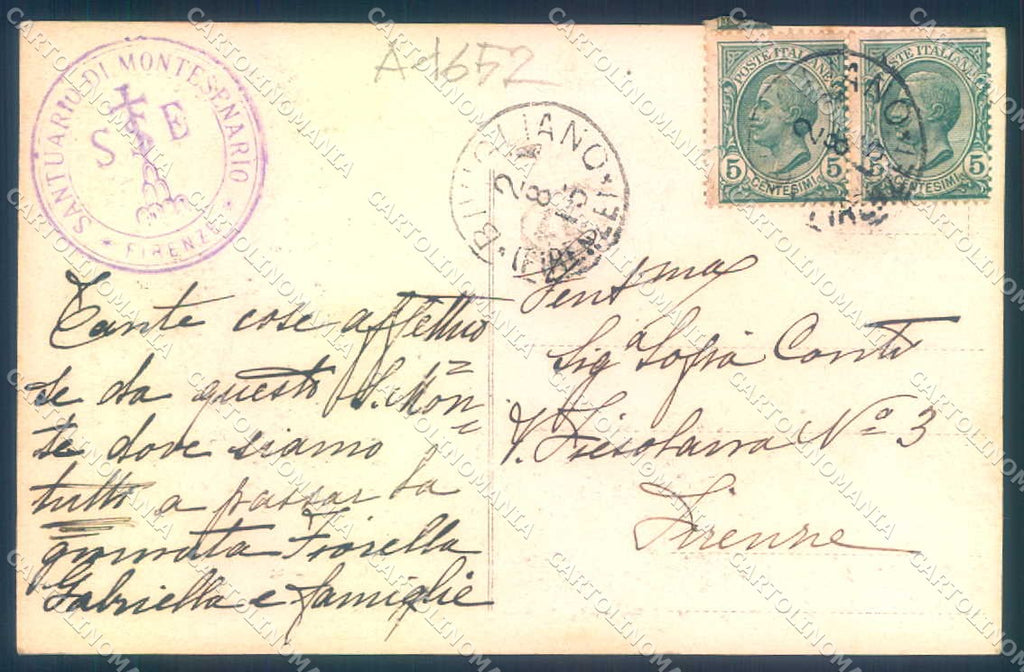 SANTUARIO DI MONTESENARIO
S E
* FIRENZE *
A1652
BIVIGLIANO
2 8 15
(FIRENZE)
POSTE ITALIANE
5 CENTESIMI 5
POSTE ITALIANE
CENTESIMI 5
Tante cose affettuo
se da questo S. Mon=
te dove siamo
tutti a passar la
giornata Fiorella
Gabriella e famiglie
Gent ma
Sig a Sofia Conti
V. Fiesolana No 3
Firenze
CARTOLINOMANIA